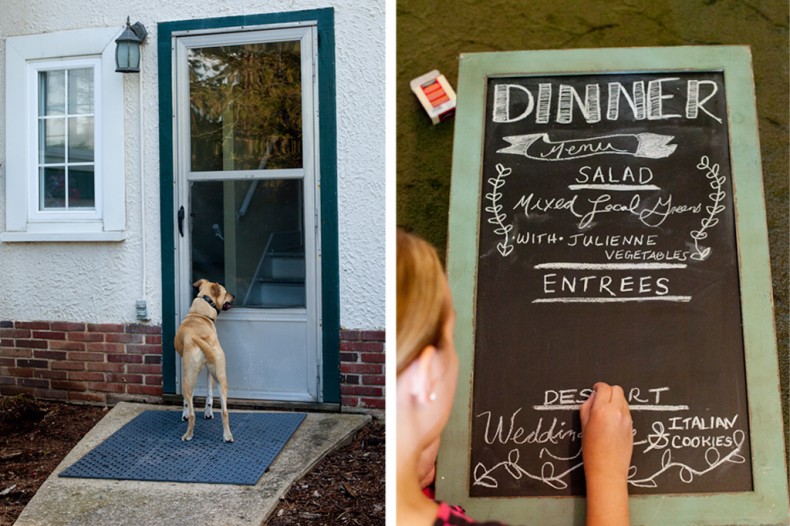 DINNER
Menu
SALAD
Mixed Local Greens
·WITH· JULIENNE
VEGETABLES
ENTREES
DESSERT
Wedding
& ITALIAN
COOKIES